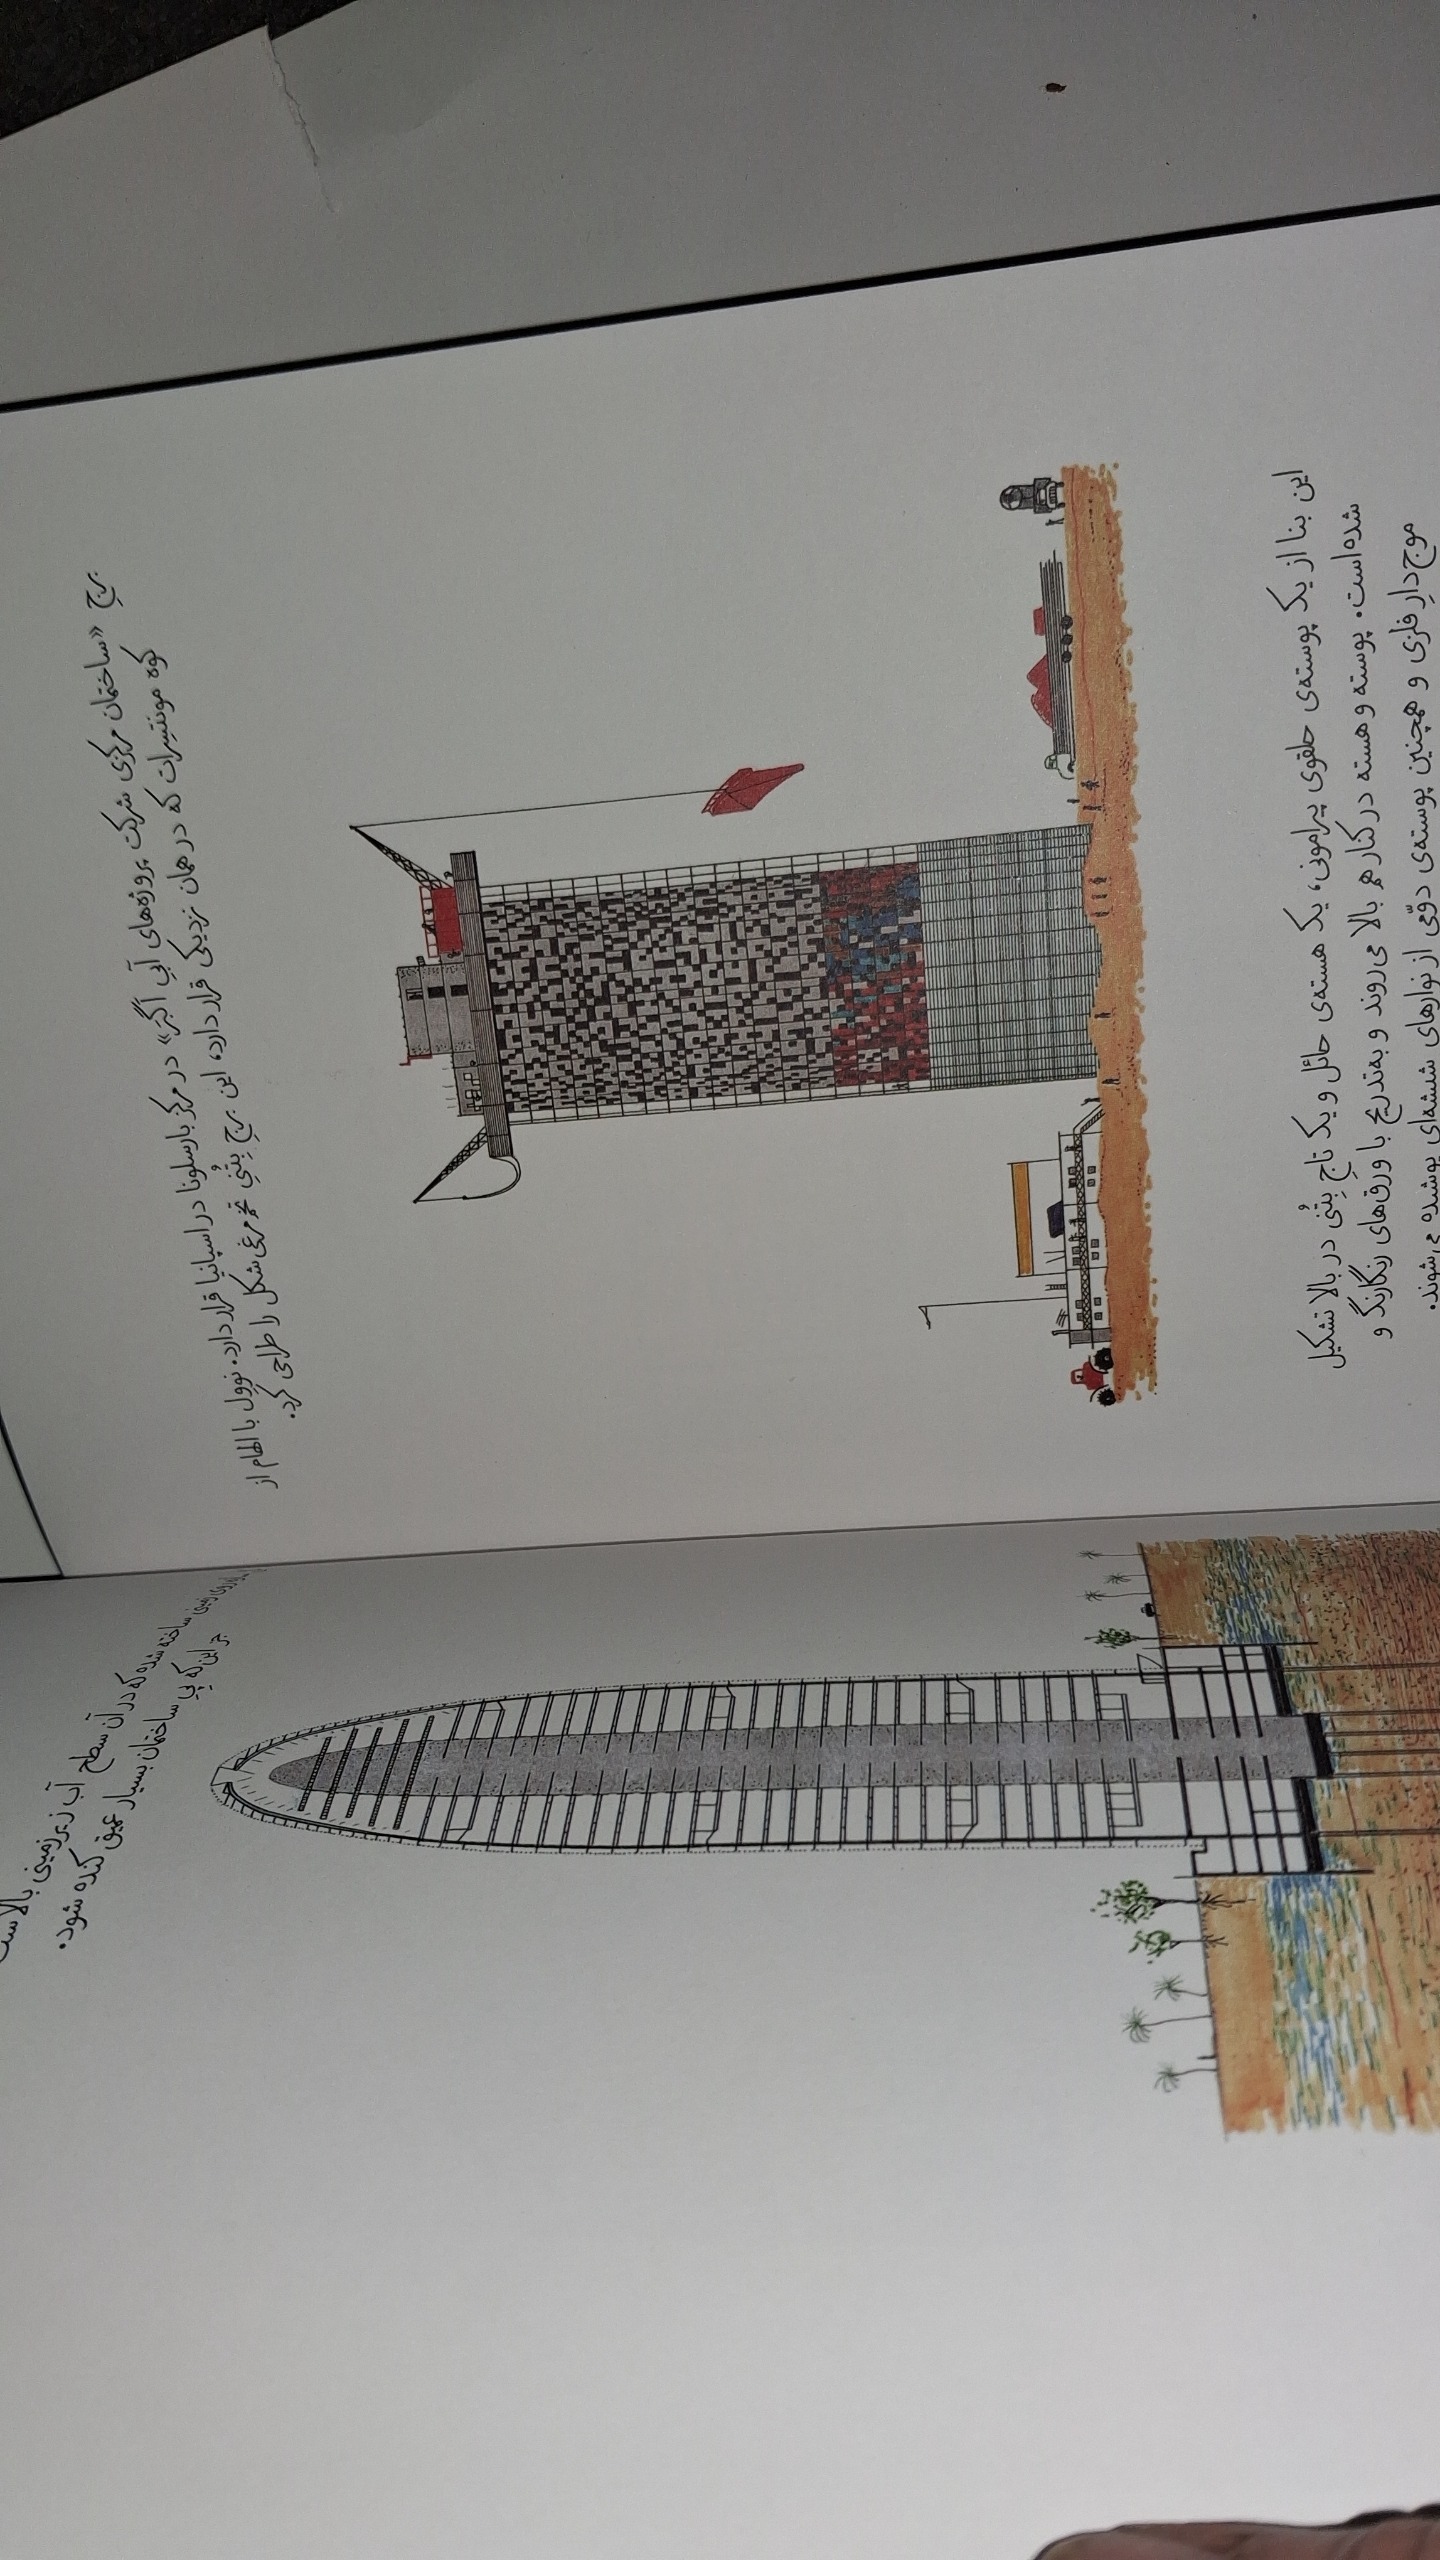 برجِ «ساختمان مرکزی شرکت پروژه‌های آبیِ آگبَر» در مرکز بارسلونا در اسپانیا قرار دارد. نوول با الهام از
کوه مونتسرات که در همان نزدیکی قرار دارد، این برجِ بِتُنیِ تخم‌مرغی‌شکل را طراحی کرد.
این بنا از یک پوسته‌ی حلقوی پیرامونی، یک هسته‌ی حائل و یک تاجِ بِتُنی در بالا تشکیل
شده است. پوسته و هسته در کنار هم بالا می‌روند و به‌تدریج با ورق‌های رنگارنگ و
موج‌دارِ فلزی و همچنین پوسته‌ی دوّمی از نوارهای شیشه‌ای پوشیده می‌شوند.
زمینی ساخته شده که در آن سطح آب زیرزمینی بالاست
جز این‌که پیِ ساختمان بسیار عمیق کنده شود.